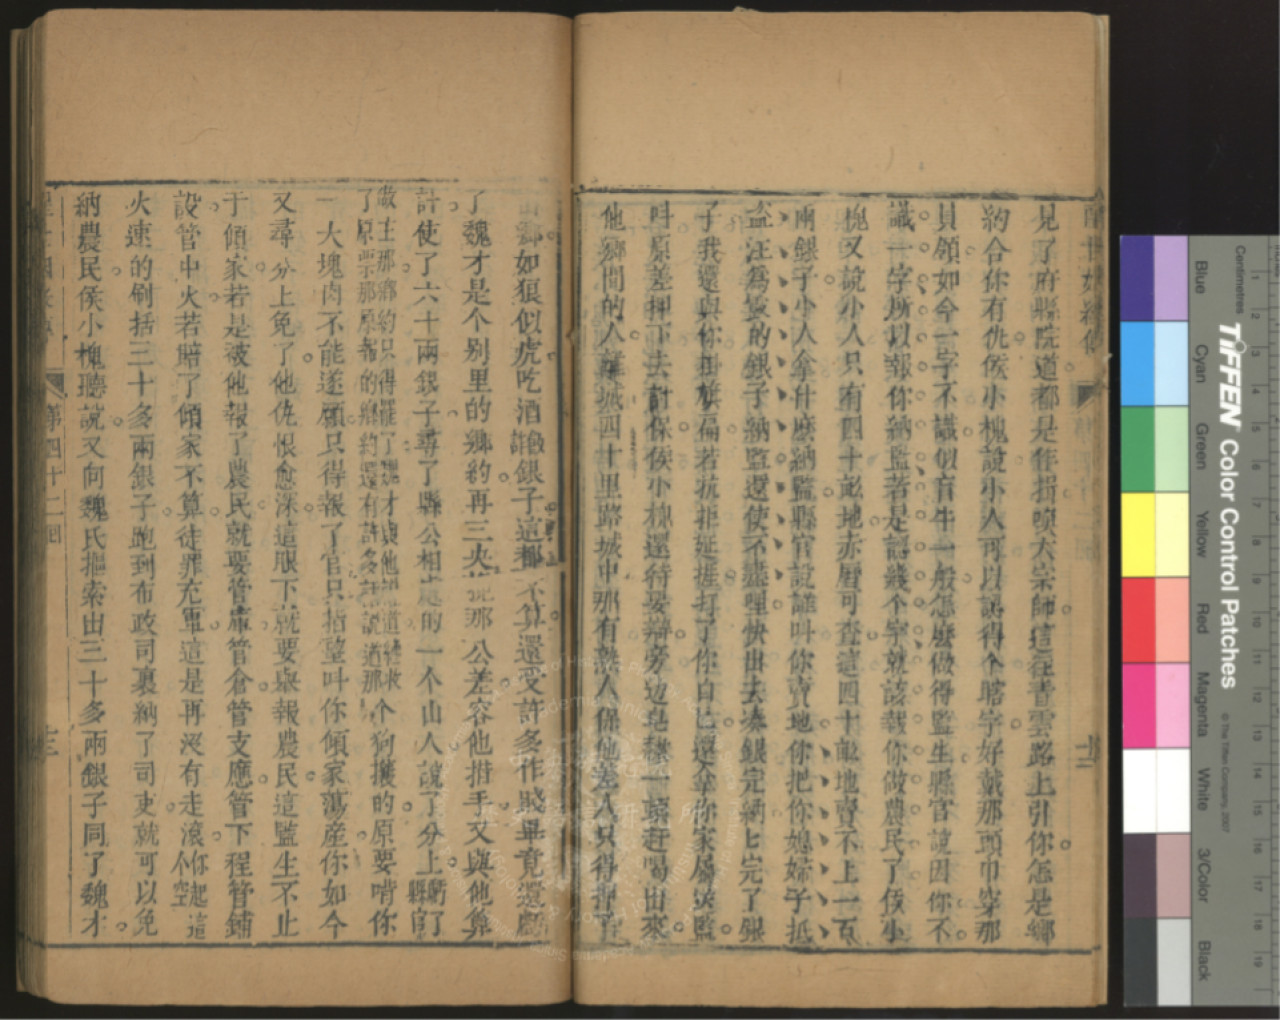 見了府縣院道都是作揖喚大宗師這在青雲路上引你怎是鄉
約合你有仇侯小槐說小人可以認得个瞎字好戴那頭巾穿那
員領如今一字不識似盲牛一般怎麼做得監生縣官說因你不
識一字所以報你納監若是認幾个字就該報你做農民了侯小
槐又說小人只有四十畝地赤曆可查這四十畝地賣不上一百
兩銀子小人拿什麼納監縣官說誰叫你賣地你把你媳婦子抵
盗汪爲露的銀子納監還使不盡哩快出去湊銀完納匕完了張
子我還與你掛旗匾若抗拒延捱打了你自匕還拿你家屬送監
叫原差押下去討保侯小槐還待要辯旁边皂隸一頓赶喝出來
他鄉間的人離城四十里路城中那有熟人保他差人只得押了
鄉如狼似虎吃酒詐銀子這都不算還受許多作賤畢竟還虧
了魏才是个别里的鄉約再三央說那公差容他措手又與他算
計使了六十兩銀子尋了縣公相處的一个山人說了分上虧了縣官
做主那鄉約只得罷了魏才與他說道總承个狗攮的原要啃你
了原票那原報的鄉約還有許多話說道那
一大塊肉不能遂願只得報了官只指望叫你傾家蕩産你如今
又尋分上免了他仇恨愈深這眼下就要舉報農民這監生不止
于傾家若是被他報了農民就要管庫管倉管支應管下程管鋪
設管中火若賠了傾家不算徒罪充軍這是再沒有走滾你空起這
火速的刷括三十多兩銀子跑到布政司裏納了司吏就可以免
納農民侯小槐聽說又向魏氏摳索出三十多兩銀子同了魏才
第四十二回
Centimetres
TIFFEN Color Control Patches
© The Tiffen Company, 2007
Blue Cyan Green Yellow Red Magenta White 3/Color Black
1 2 3 4 5 6 7 8 9 10 11 12 13 14 15 16 17 18 19